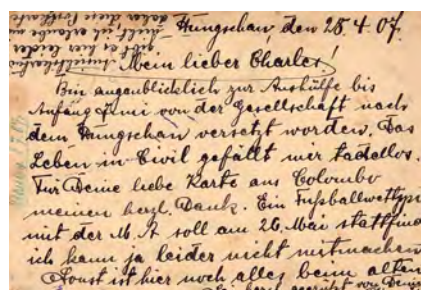 Hungschan den 28.4.07.
Mein lieber Charles!
Bin augenblicklich zur Aushülfe bis
Anfang Juni von der Gesellschaft nach
dem Hungschan versetzt worden. Das
Leben in Civil gefällt mir tadellos.
Für Deine liebe Karte aus Colombo
meinen herzl. Dank. Ein Fussballwettspi
mit der M. A soll am 26. Mai stattfind
ich kann ja leider nicht mitmachen
Sonst ist hier noch alles beim alten
herz. gegrüßt von Deine
daher diese Postkarte
gibt es hier leider